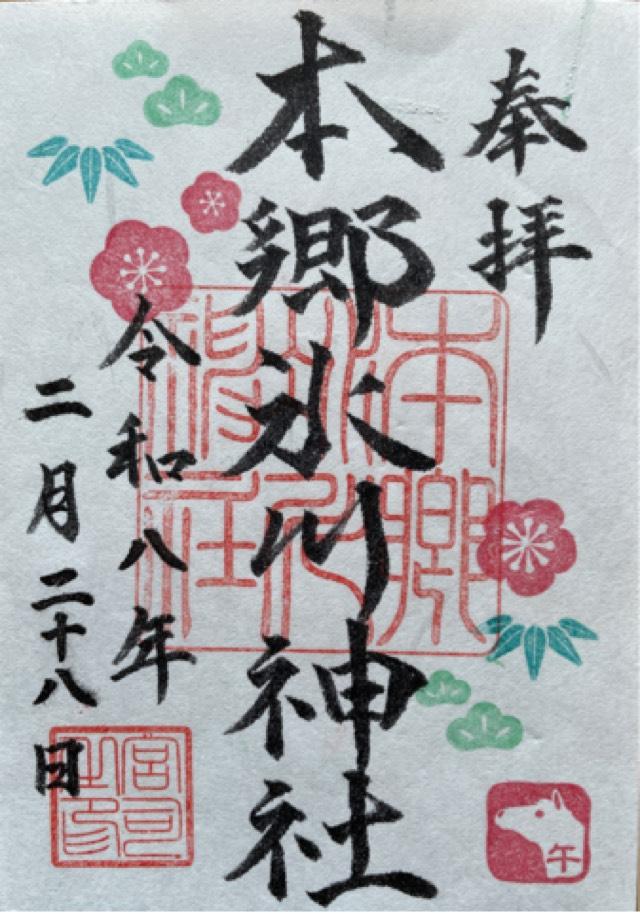 奉拝
本郷氷川神社
令和八年
二月二十八日
本郷
氷川
神社
宮司之印
午